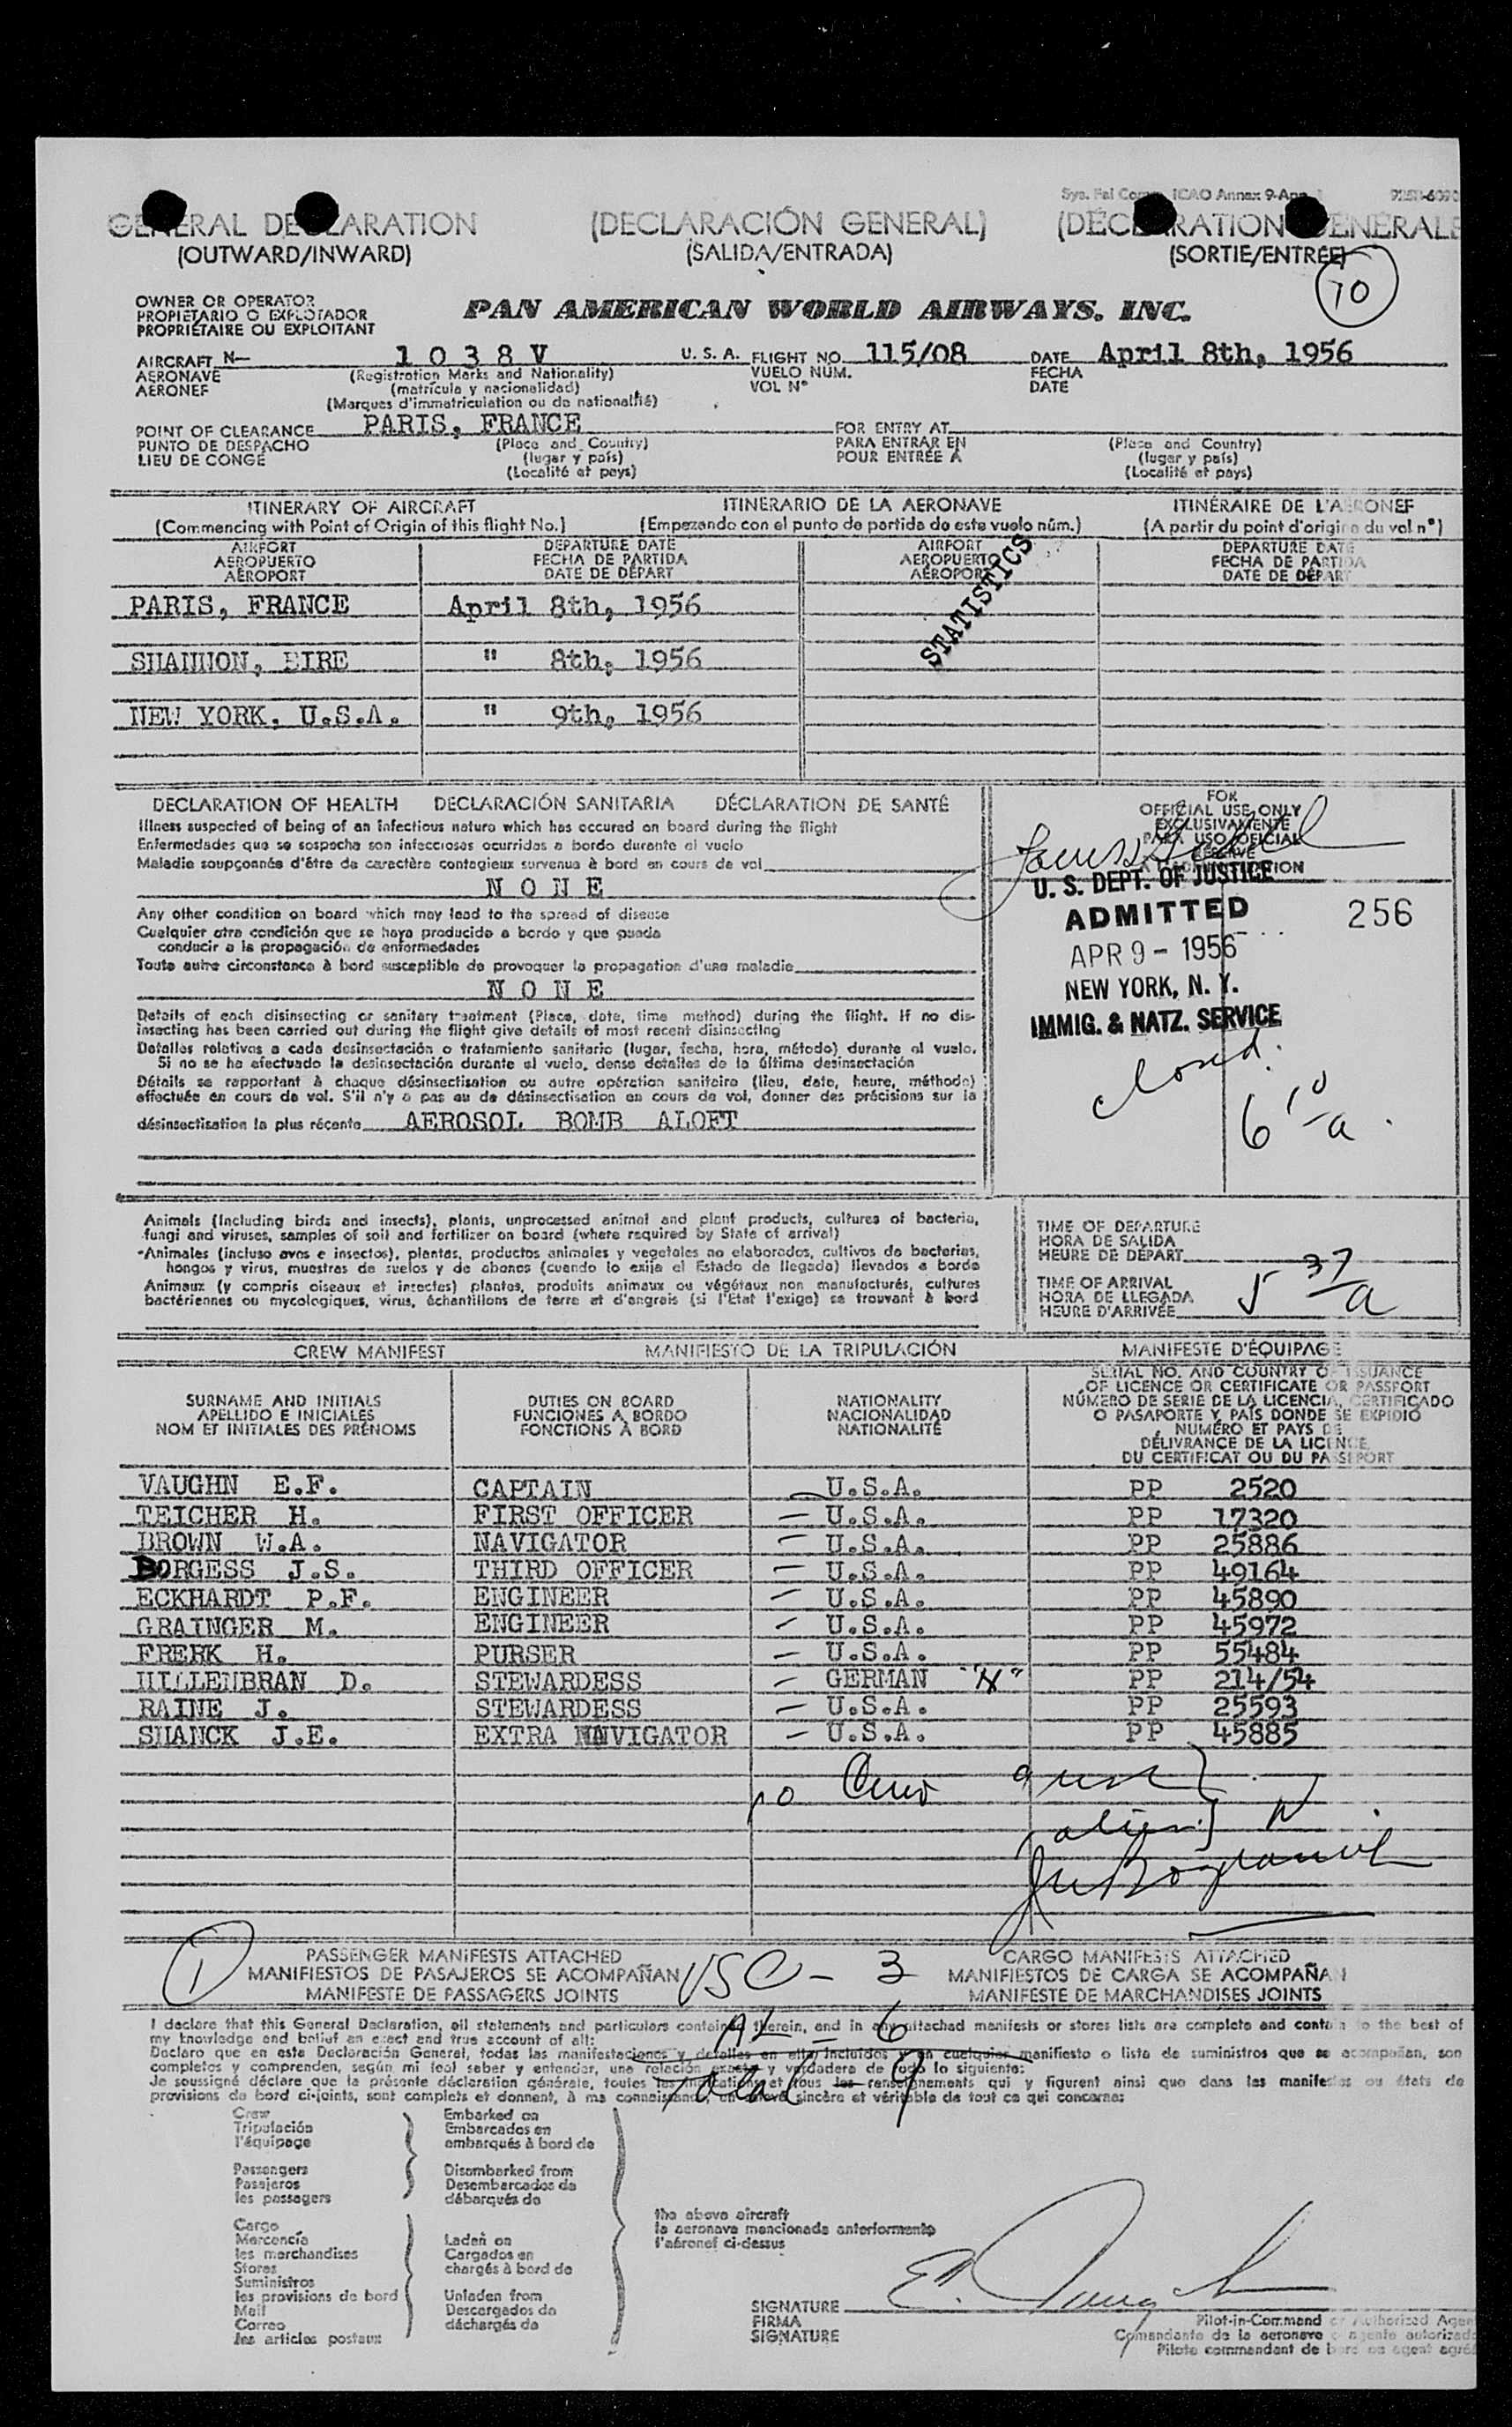 Sys. Fal Com. ICAO Annex 9-App.
GENERAL DECLARATION (DECLARACIÓN GENERAL) (DÉCLARATION GÉNÉRALE
(OUTWARD/INWARD) (SALIDA/ENTRADA) (SORTIE/ENTRÉE)
10
OWNER OR OPERATOR
PROPIETARIO O EXPLOTADOR
PROPRIÉTAIRE OU EXPLOITANT
PAN AMERICAN WORLD AIRWAYS, INC.
AIRCRAFT N— 1 0 3 8 V U. S. A. FLIGHT NO. 115/08 DATE April 8th, 1956
AERONAVE (Registration Marks and Nationality) VUELO NUM. FECHA
AERONEF (matrícula y nacionalidad) VOL Nº DATE
(Marques d'immatriculation ou de nationalité)
POINT OF CLEARANCE PARIS, FRANCE FOR ENTRY AT
PUNTO DE DESPACHO (Place and Country) PARA ENTRAR EN (Place and Country)
LIEU DE CONGÉ (lugar y país) POUR ENTRÉE A (lugar y país)
(Localité et pays) (Localité et pays)
ITINERARY OF AIRCRAFT ITINERARIO DE LA AERONAVE ITINÉRAIRE DE L'AÉRONEF
(Commencing with Point of Origin of this flight No.) (Empezando con el punto de partida de este vuelo núm.) (A partir du point d'origine du vol nº)
AIRPORT DEPARTURE DATE AIRPORT DEPARTURE DATE
AEROPUERTO FECHA DE PARTIDA AEROPUERTO FECHA DE PARTIDA
AÉROPORT DATE DE DÉPART AÉROPORT DATE DE DÉPART
STATISTICS
PARIS, FRANCE April 8th, 1956
SHANNON, EIRE " 8th, 1956
NEW YORK, U.S.A. " 9th, 1956
DECLARATION OF HEALTH DECLARACIÓN SANITARIA DÉCLARATION DE SANTÉ
Illness suspected of being of an infectious nature which has occured on board during the flight
Enfermedades que se sospecha son infecciosas ocurridas a bordo durante el vuelo
Maladie soupçonnés d'être de caractère contagieux survenue à bord en cours de vol
N O N E
Any other condition on board which may lead to the spread of disease
Cualquier otra condición que se haya producido a bordo y que pueda
conducir a la propagación de enfermedades
Toute autre circonstance à bord susceptible de provoquer la propagation d'une maladie
N O N E
Details of each disinsecting or sanitary treatment (Place, date, time method) during the flight. If no dis-
insecting has been carried out during the flight give details of most recent disinsecting
Detalles relativos a cada desinsectación o tratamiento sanitario (lugar, fecha, hora, método) durante el vuelo.
Si no se ha efectuado la desinsectación durante el vuelo, dense detalles de la última desinsectación
Détails se rapportant à chaque désinsectisation ou autre opération sanitaire (lieu, date, heure, méthode)
effectuée en cours de vol. S'il n'y a pas eu de désinsectisation en cours de vol, donner des précisions sur la
désinsectisation la plus récente AEROSOL BOMB ALOFT
FOR
OFFICIAL USE ONLY
EXCLUSIVAMENTE
PARA USO OFICIAL
U. S. DEPT. OF JUSTICE
ADMITTED 256
APR 9 - 1956
NEW YORK, N. Y.
IMMIG. & NATZ. SERVICE
closed.
6 10 a.
Animals (Including birds and insects), plants, unprocessed animal and plant products, cultures of bacteria,
fungi and viruses, samples of soil and fertilizer on board (where required by State of arrival)
Animales (incluso aves e insectos), plantas, productos animales y vegetales no elaborados, cultivos de bacterias,
hongos y virus, muestras de suelos y de abonos (cuando lo exija el Estado de llegada) llevados a bordo
Animaux (y compris oiseaux et insectes) plantes, produits animaux ou végétaux non manufacturés, cultures
bactériennes ou mycologiques, virus, échantillons de terre et d'engrais (si l'Etat l'exige) se trouvant à bord
TIME OF DEPARTURE
HORA DE SALIDA
HEURE DE DÉPART
TIME OF ARRIVAL
HORA DE LLEGADA
HEURE D'ARRIVÉE 5 37 a
CREW MANIFEST MANIFIESTO DE LA TRIPULACIÓN MANIFESTE D'ÉQUIPAGE
SURNAME AND INITIALS
APELLIDO E INICIALES
NOM ET INITIALES DES PRÉNOMS
DUTIES ON BOARD
FUNCIONES A BORDO
FONCTIONS À BORD
NATIONALITY
NACIONALIDAD
NATIONALITÉ
SERIAL NO. AND COUNTRY OF ISSUANCE
OF LICENCE OR CERTIFICATE OR PASSPORT
NÚMERO DE SERIE DE LA LICENCIA, CERTIFICADO
O PASAPORTE Y PAÍS DONDE SE EXPIDIÓ
NUMÉRO ET PAYS DE
DÉLIVRANCE DE LA LICENCE,
DU CERTIFICAT OU DU PASSEPORT
VAUGHN E.F. CAPTAIN — U.S.A. PP 2520
TEICHER H. FIRST OFFICER — U.S.A. PP 17320
BROWN W.A. NAVIGATOR — U.S.A. PP 25886
BORGESS J.S. THIRD OFFICER — U.S.A. PP 49164
ECKHARDT P.F. ENGINEER — U.S.A. PP 45890
GRAINGER M. ENGINEER — U.S.A. PP 45972
FRERK H. PURSER — U.S.A. PP 55484
HILLENBRAN D. STEWARDESS — GERMAN PP 214/54
RAINE J. STEWARDESS — U.S.A. PP 25593
SHANCK J.E. EXTRA NAVIGATOR — U.S.A. PP 45885
10 Crew
alien
1
PASSENGER MANIFESTS ATTACHED CARGO MANIFESTS ATTACHED
MANIFIESTOS DE PASAJEROS SE ACOMPAÑAN USC - 3 MANIFIESTOS DE CARGA SE ACOMPAÑAN
MANIFESTE DE PASSAGERS JOINTS MANIFESTE DE MARCHANDISES JOINTS
AL - 6
Total - 9
I declare that this General Declaration, all statements and particulars contained therein, and in any attached manifests or stores lists are complete and contain to the best of
my knowledge and belief an exact and true account of all:
Declaro que en esta Declaración General, todas las manifestaciones y detalles en ella incluídos y en cualquier manifiesto o lista de suministros que se acompañan, son
completos y comprenden, según mi leal saber y entender, una relación exacta y verdadera de todo lo siguiente:
Je soussigné déclare que la présente déclaration générale, toutes les indications et tous les renseignements qui y figurent ainsi que dans les manifestes ou états de
provisions de bord ci-joints, sont complets et donnent, à ma connaissance, un relevé sincère et véritable de tout ce qui concerne:
Crew
Tripulación
l'équipage
Passengers
Pasajeros
les passagers
Embarked on
Embarcados en
embarqués à bord de
Disembarked from
Desembarcados de
débarqués de
Cargo
Mercancía
les marchandises
Stores
Suministros
les provisions de bord
Mail
Correo
les articles postaux
Laden on
Cargados en
chargés à bord de
Unladen from
Descargados de
déchargés de
the above aircraft
la aeronave mencionada anteriormente
l'aéronef ci-dessus
SIGNATURE
FIRMA
SIGNATURE
Pilot-in-Command or Authorized Agent
Comandante de la aeronave o agente autorizado
Pilote commandant de bord ou agent agréé